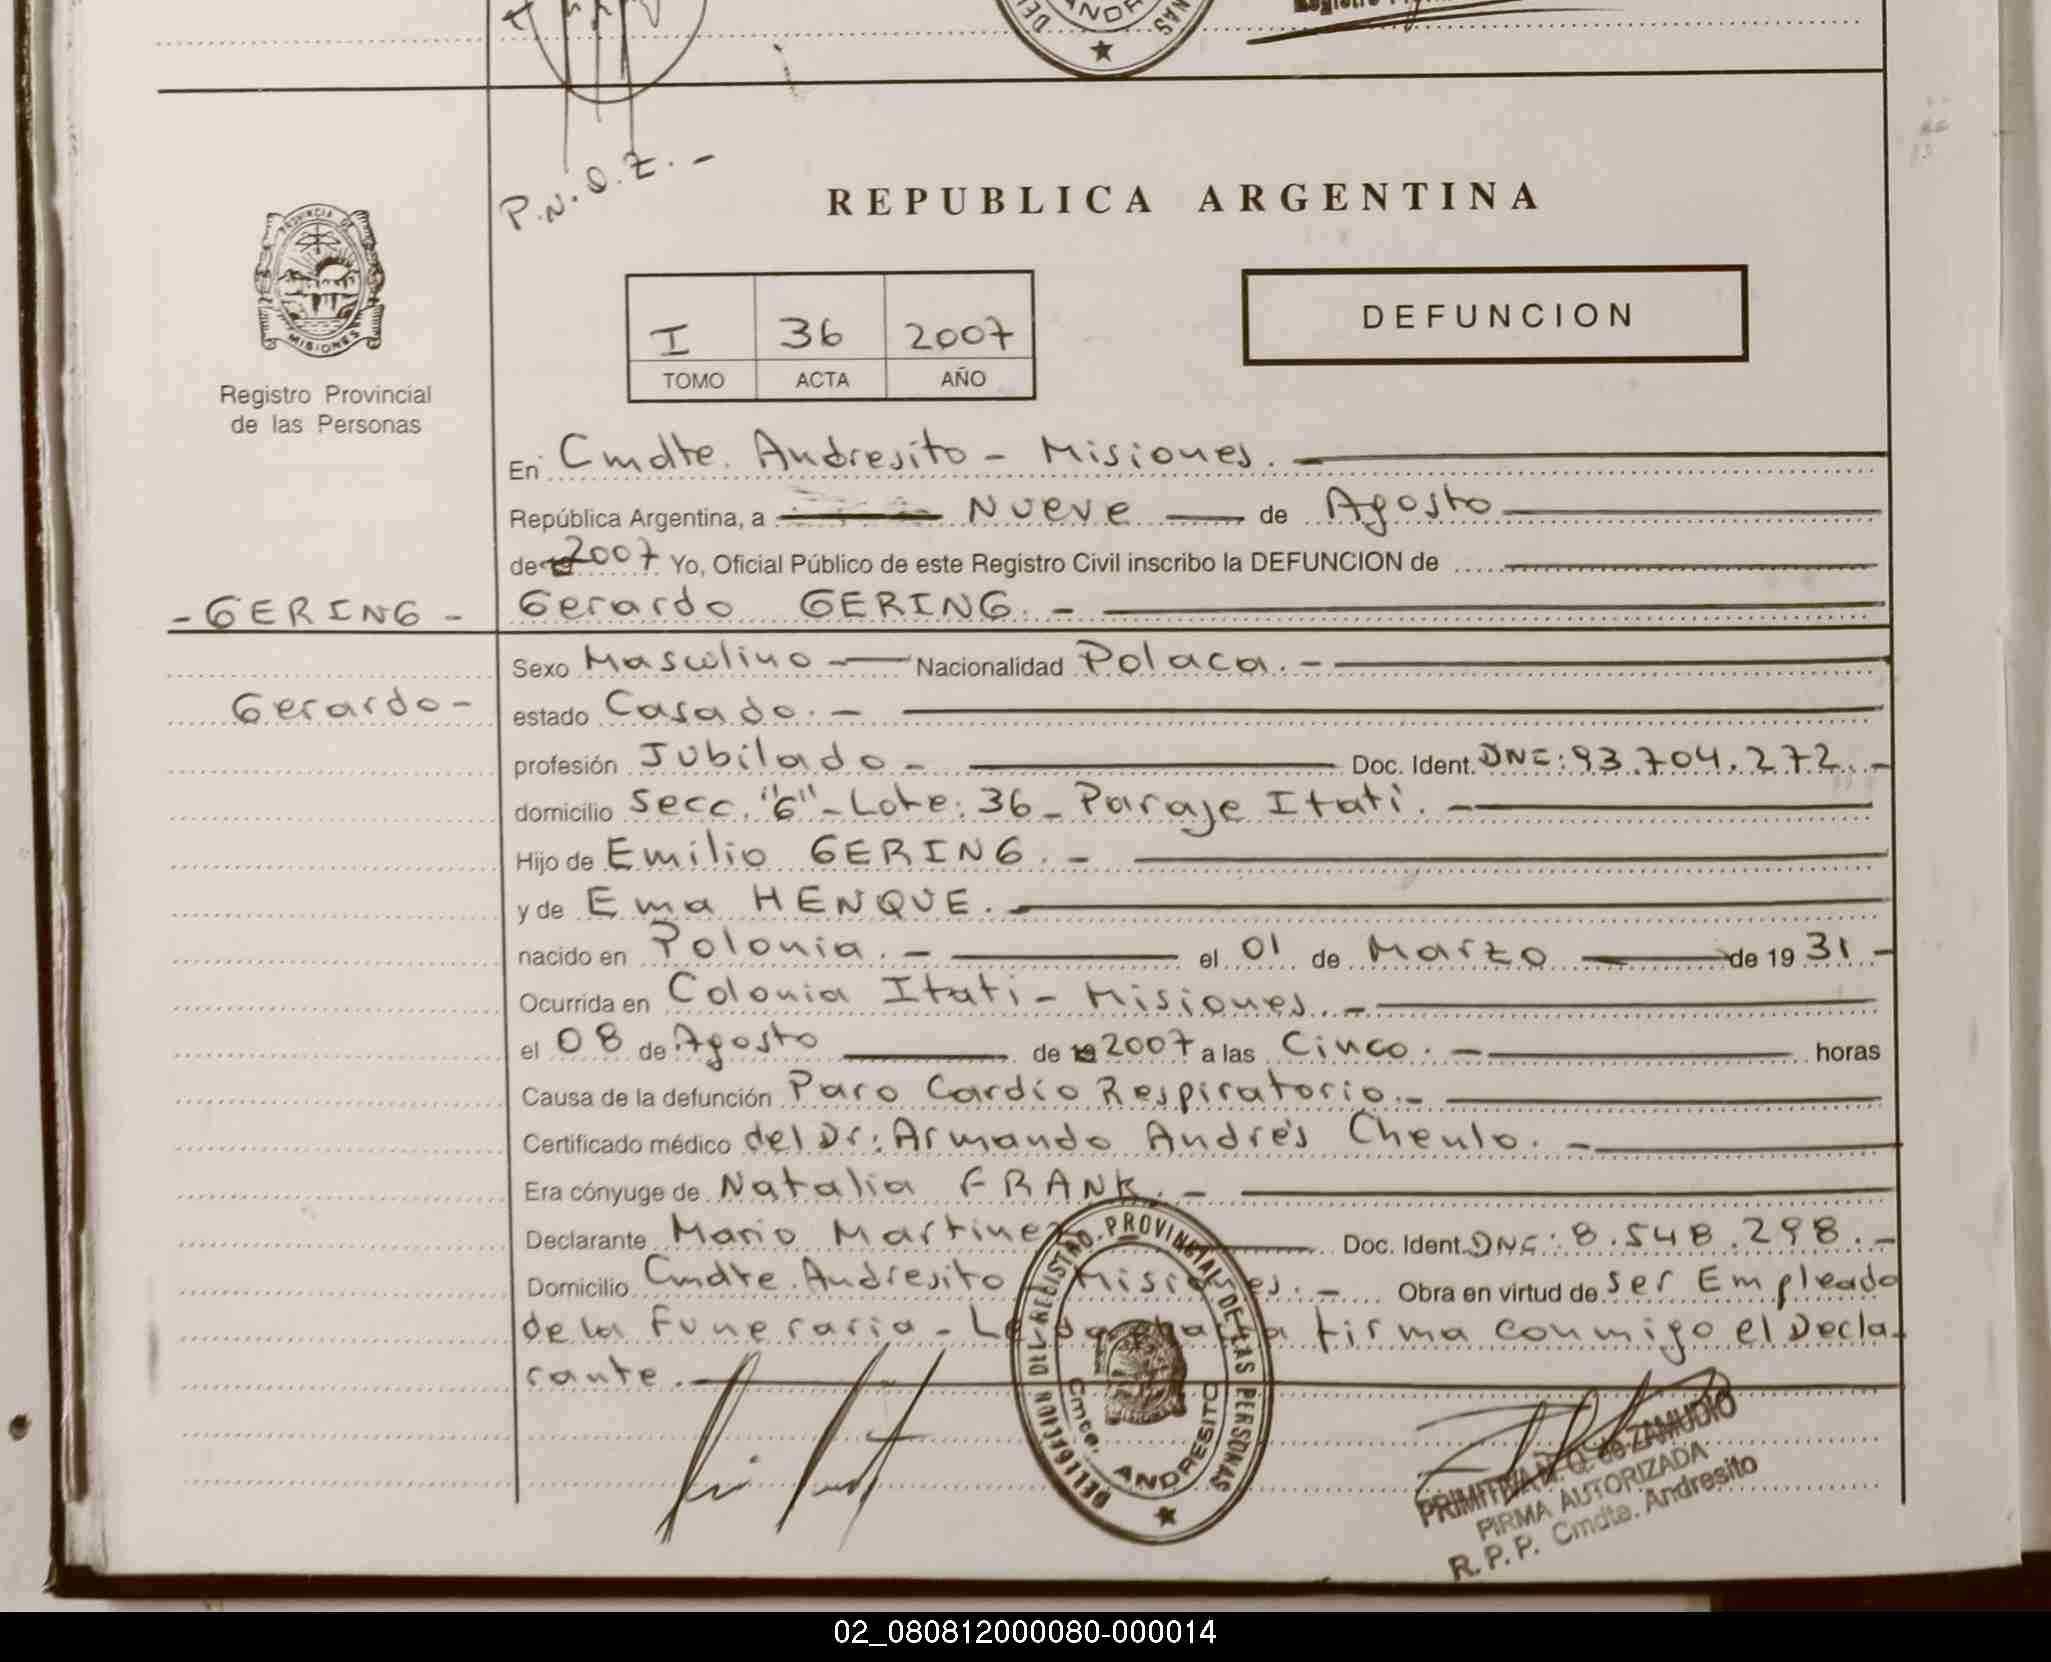 P.N.Q.Z.-
PROVINCIA DE
MISIONES
Registro Provincial
de las Personas
REPUBLICA ARGENTINA
I 36 2007
TOMO ACTA AÑO
DEFUNCION
En Cmdte. Andresito - Misiones.
República Argentina, a Nueve de Agosto
de 2007 Yo, Oficial Público de este Registro Civil inscribo la DEFUNCION de
- GERING - Gerardo GERING. -
Sexo Masculino Nacionalidad Polaca. -
Gerardo - estado Casado. -
profesión Jubilado - Doc. Ident. DNE: 93.704.272. -
domicilio Secc. "6" - Lote: 36 - Paraje Itatí. -
Hijo de Emilio GERING. -
y de Ema HENQUE. -
nacido en Polonia. - el 01 de Marzo de 19 31 -
Ocurrida en Colonia Itati - Misiones. -
el 08 de Agosto de 2007 a las Cinco. - horas
Causa de la defunción Paro Cardio Respiratorio. -
Certificado médico del Dr: Armando Andrés Chenlo. -
Era cónyuge de Natalia FRANK. -
Declarante Mario Martinez Doc. Ident. DNE: 8.548.298. -
Domicilio Cmdte. Andresito - Misiones. - Obra en virtud de ser Empleado
de la Funeraria - firma conmigo el Decla-
rante.
DELEGACION DEL REGISTRO PROVINCIAL DE LAS PERSONAS
Cmte. ANDRESITO
PRIMITIVA N. Q. de ZAMUDIO
FIRMA AUTORIZADA
R. P. P. Cmdte. Andresito
02_080812000080-000014